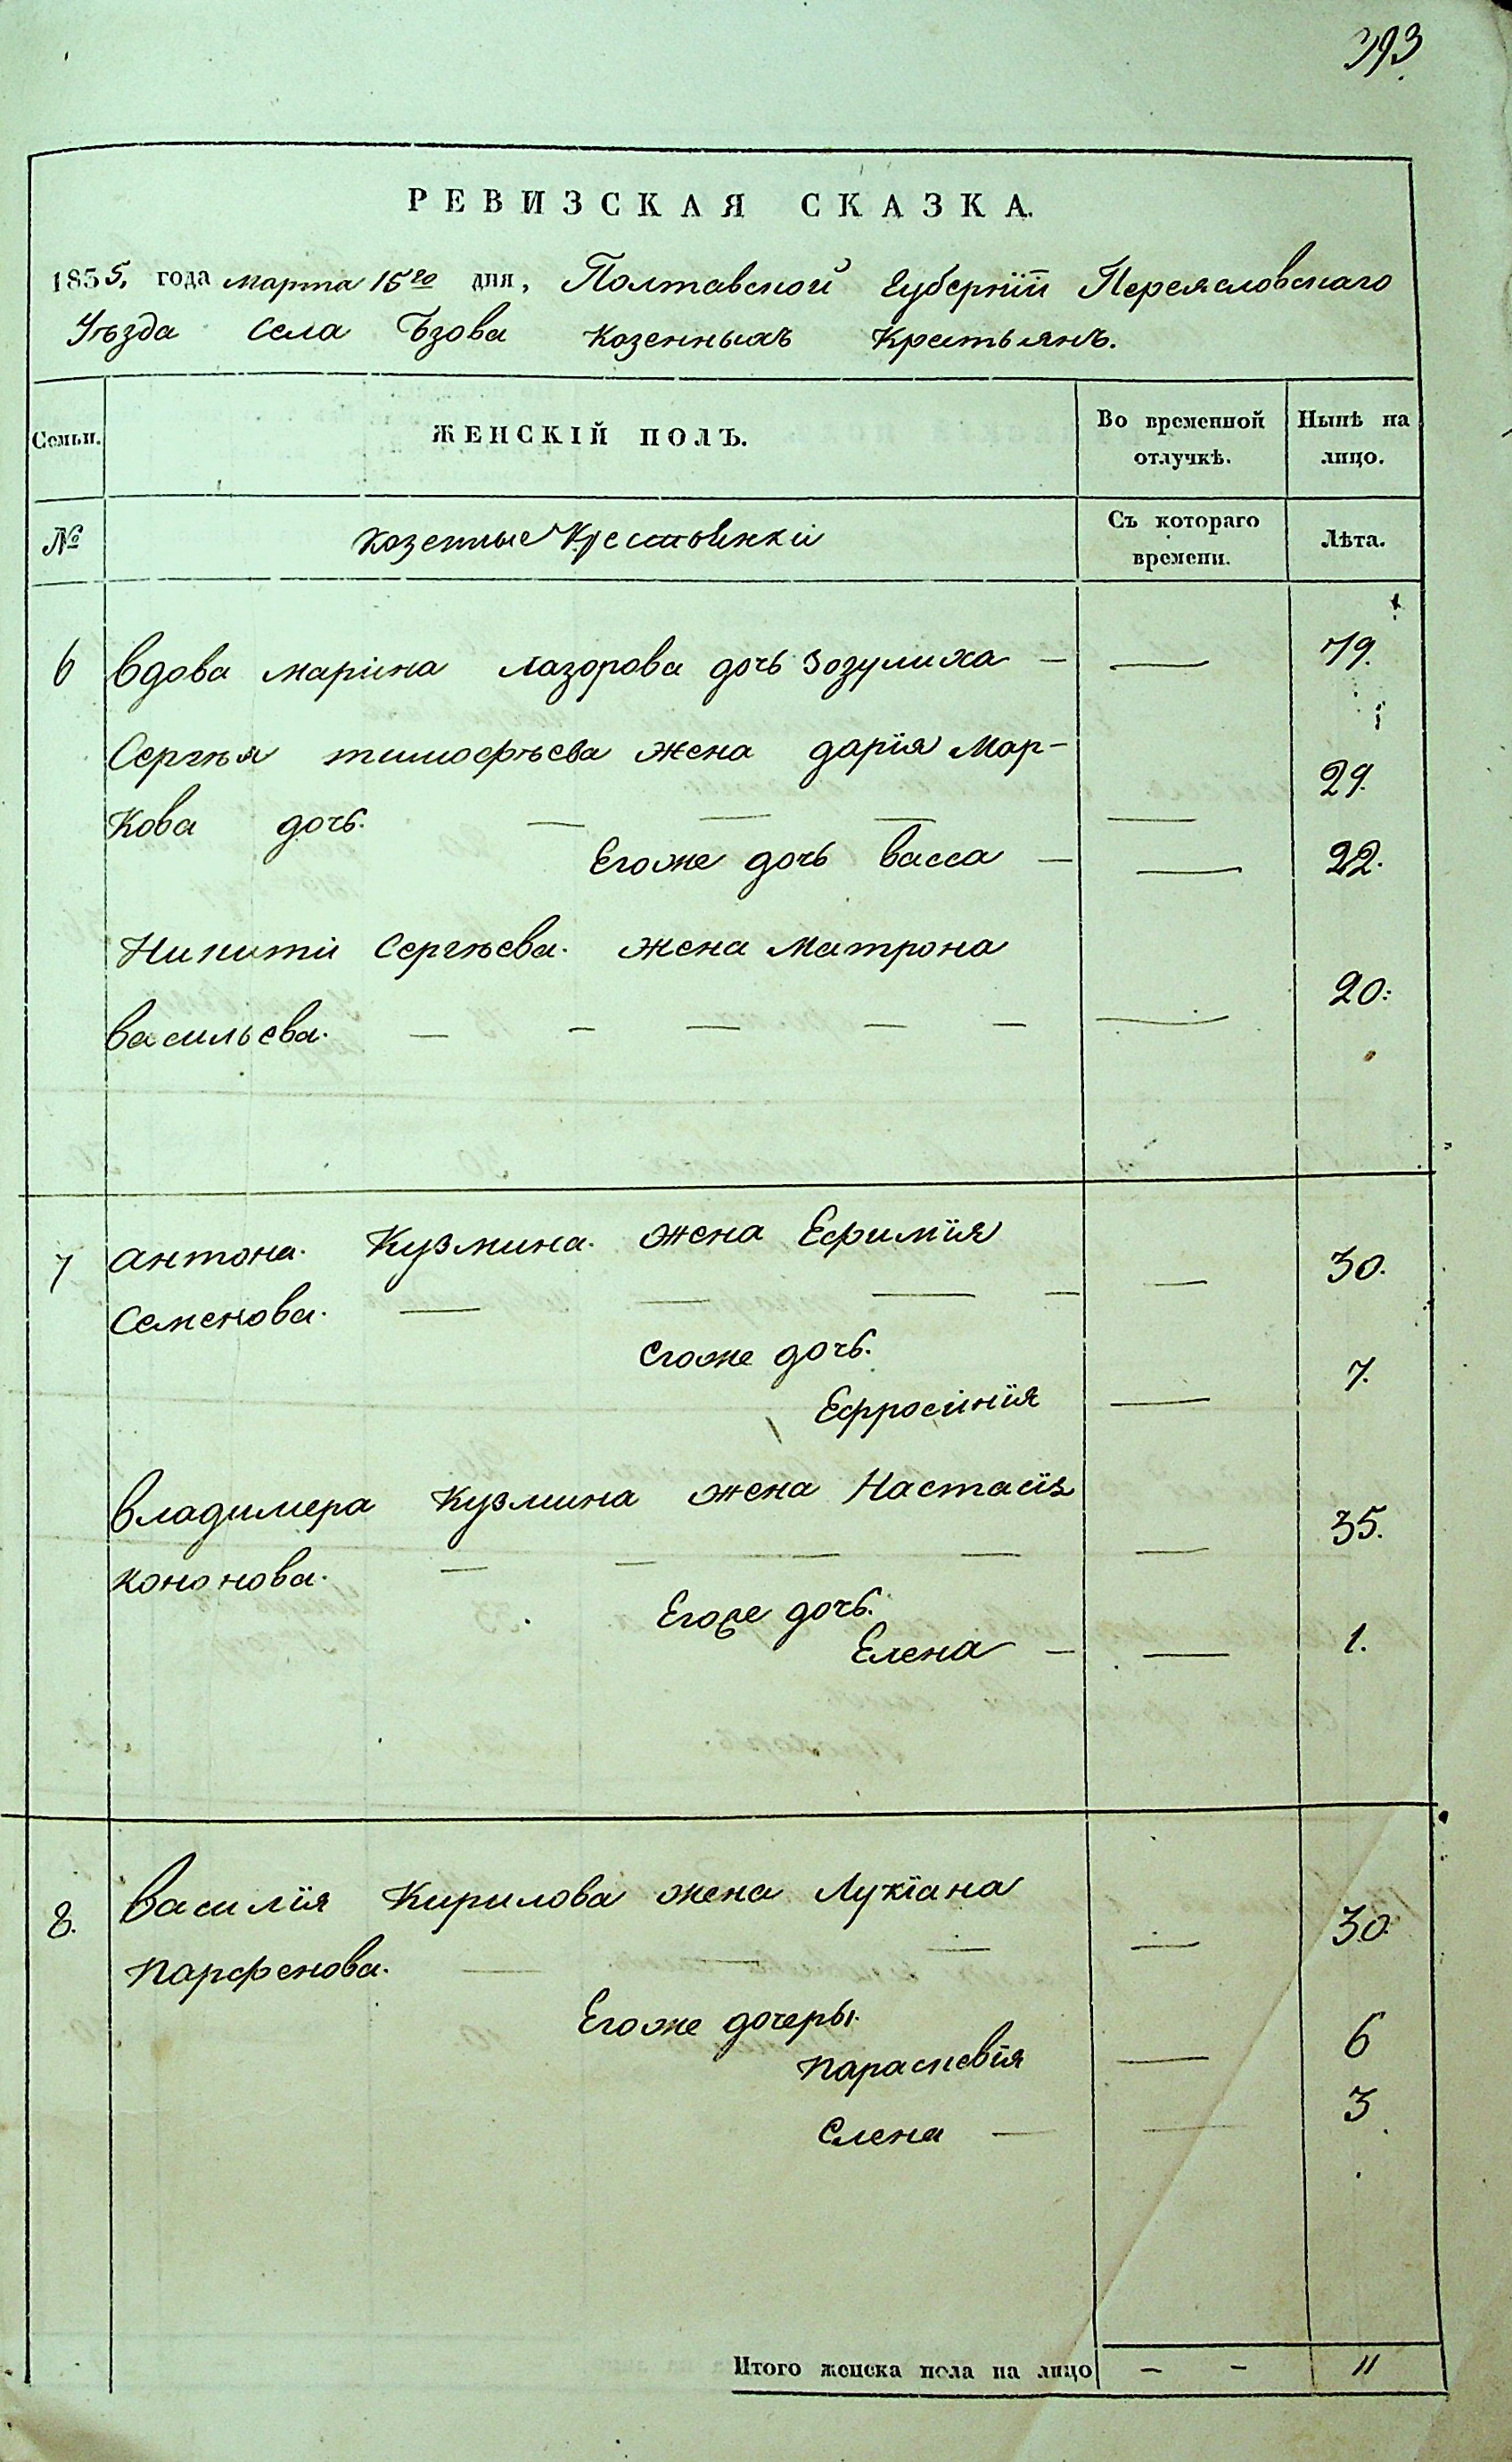 393.
РЕВИЗСКАЯ СКАЗКА.
1835, года марта 15го дня, Полтавской Губерніи Переясловскаго
Уѣзда Села Ѣзова Козенныхъ Крестьянъ.
Семьи.
ЖЕНСКІЙ ПОЛЪ.
Во временной отлучкѣ.
Нынѣ на лицо.
№
Козенные Крестьянки
Съ котораго времени.
Лѣта.
6 Вдова марина лазорова дочь Зозулиха — — 79.
Сергѣя тимофѣева жена дарія Мар-
кова дочь. — — — — 29.
Егоже дочь васса — — 22.
Никити Сергѣева. жена Матрона
васильева. — — — — — — 20.
7 антона. Кузмина. жена Ефимія
Семенова. — — — — — 30.
егоже дочь.
Ефросинія — 7.
владимера Кузмина жена Настасія
кононова. — — — — — 35.
Егоже дочь.
Елена — — 1.
8. василія Кирилова жена Лукіана
парфенова. — — — — 30.
Егоже дочеры.
параскевія — 6
Елена — — 3
Итого женска пола на лицо — — 11